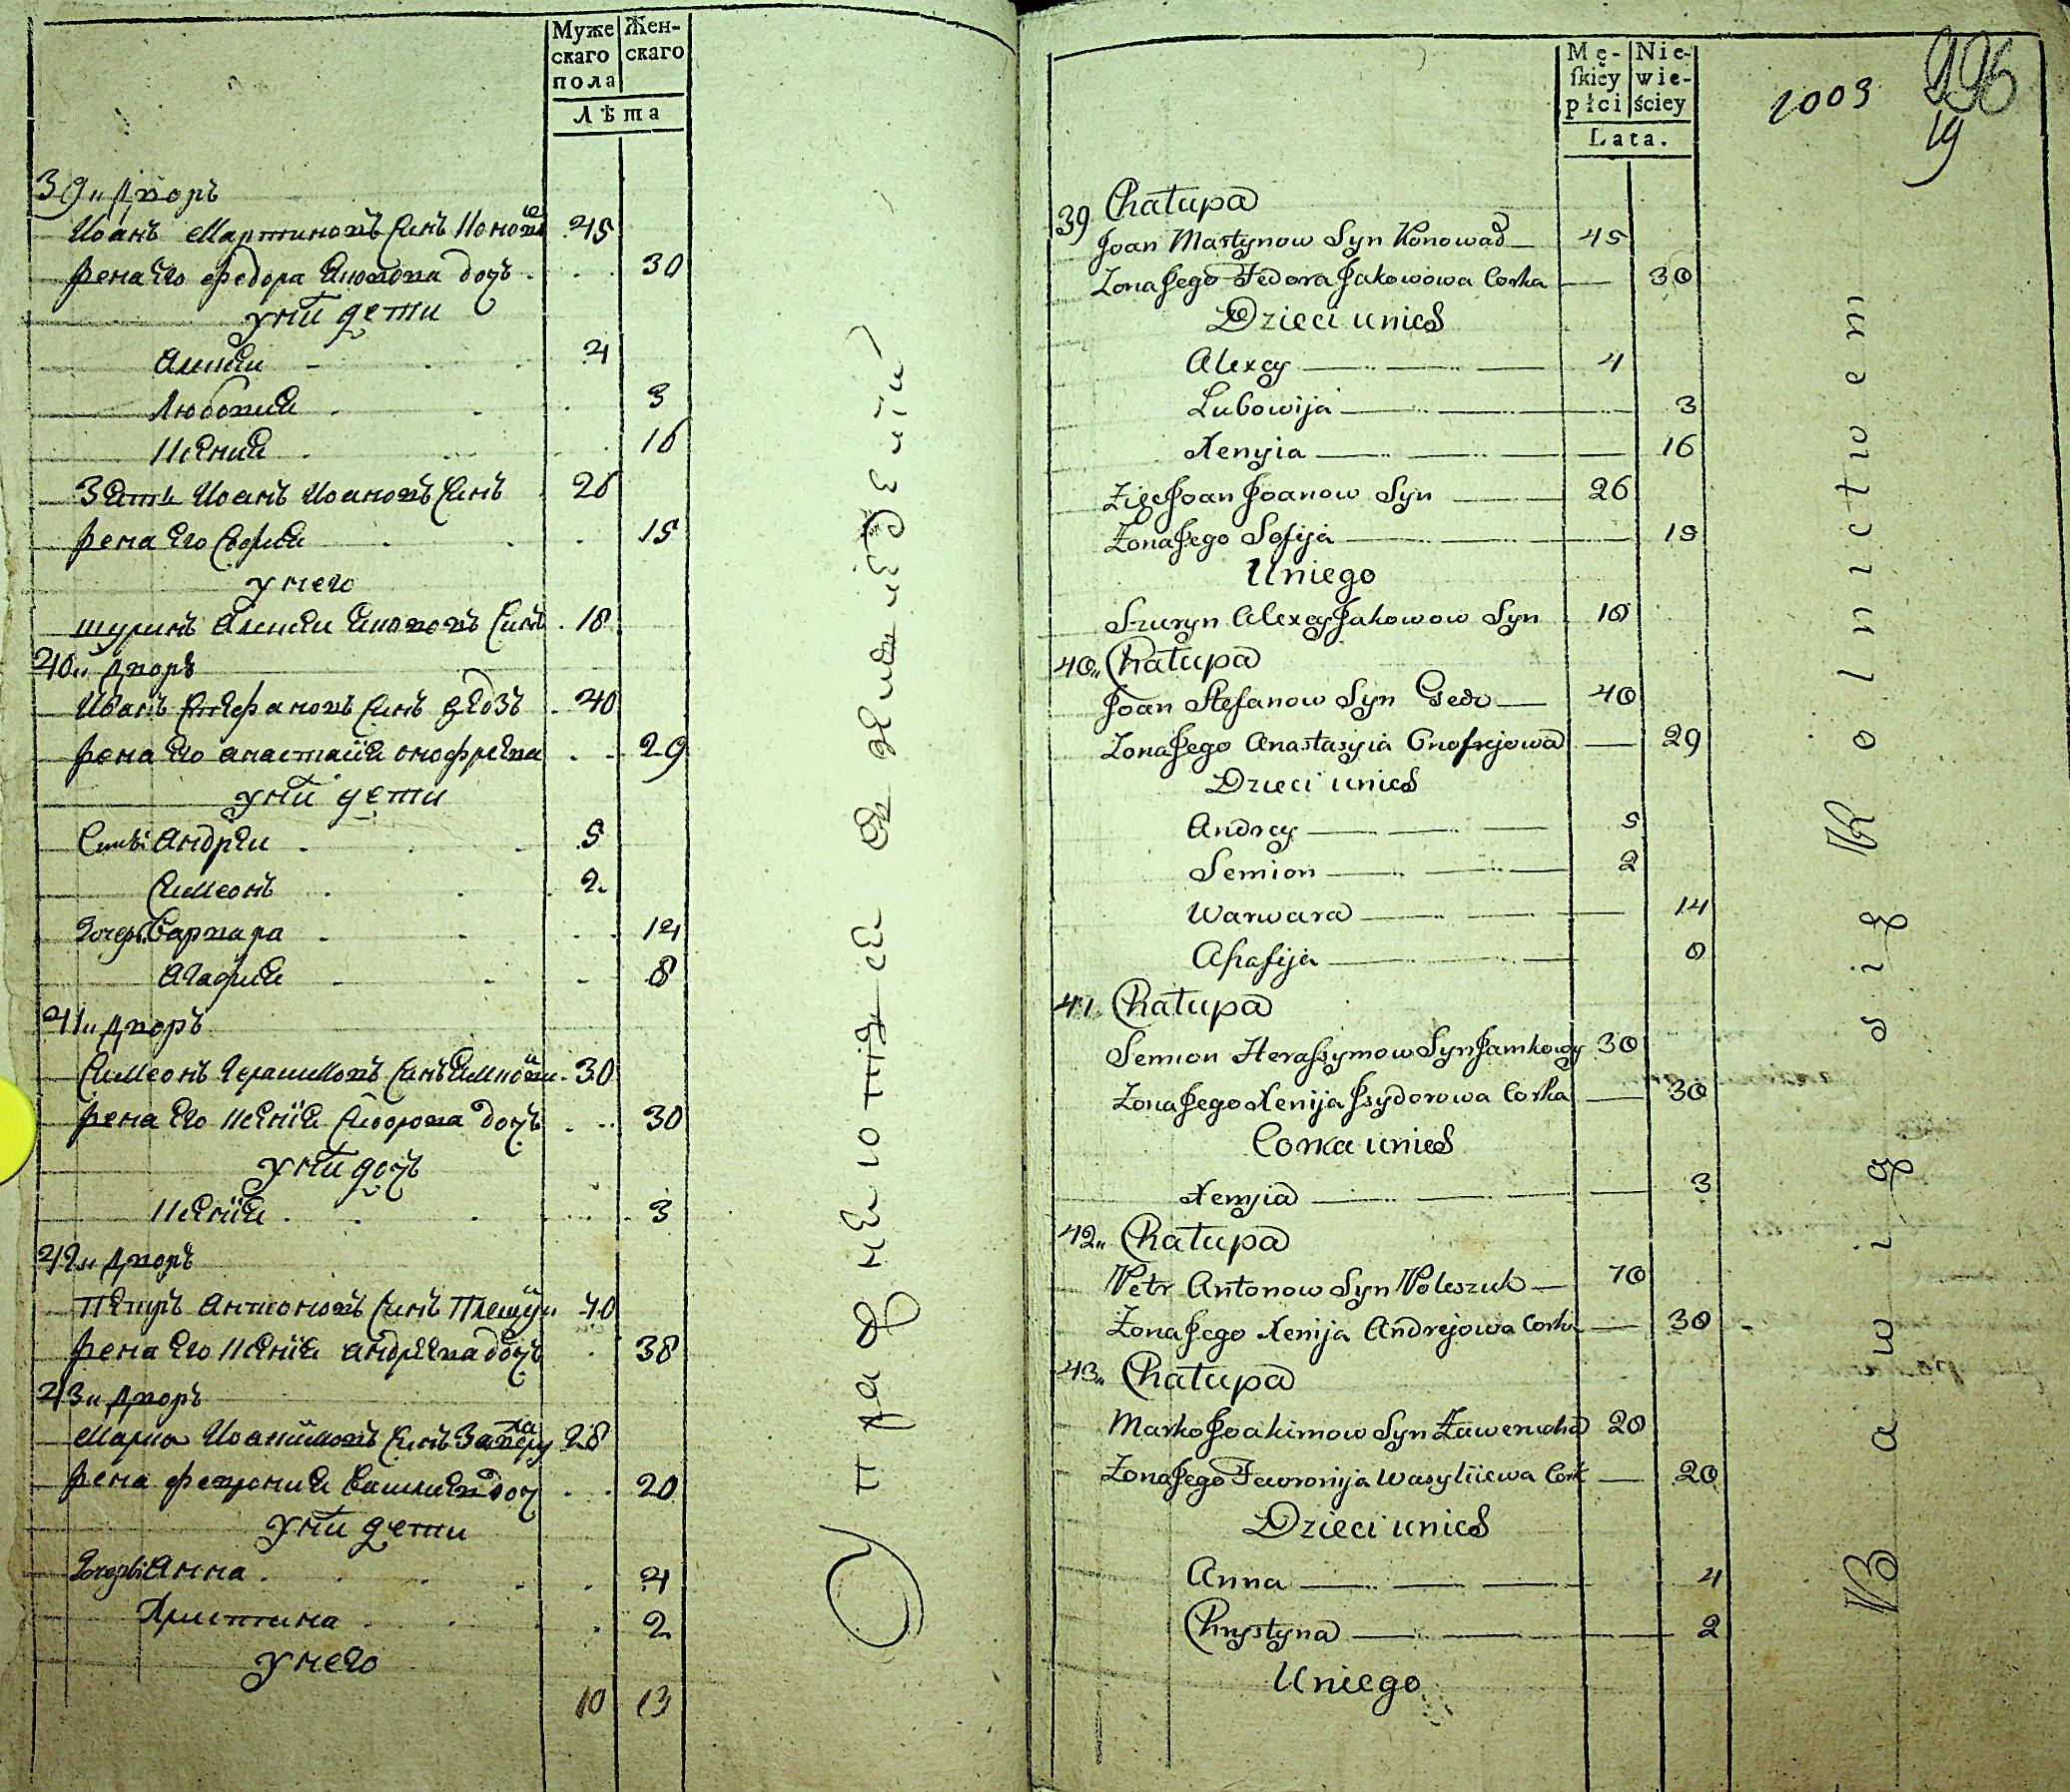 Муже Жен-
скаго скаго
пола
Лѣта
39„ Дворъ
Иоанъ Мартиновъ Синъ Коновал 45
Жена Его Федора Яковова дочъ 30
У них дети
Алексеи 4
Любовия 3
Ксения 16
Зять Иоанъ Иоановъ Синъ 26
Жена Его София 15
У него
шуринъ Алексеи Якововъ Синъ 18
40„ Дворъ
Иванъ Стефановъ Синъ 40
Жена Его Анастасïя Онофрева 29
У них дети
Сынъ Андреи 5
Симеонъ 2
Дочеръ Варвара 14
Агафия 8
41„ Дворъ
Симеонъ Герасимовъ Синъ Ямковïи 30
Жена Его Ксенïя Сидорова дочъ 30
У них дочъ
Ксенïя 3
42„ Дворъ
Петръ Антоновъ Синъ 40
Жена Его Ксенïя Андреева дочъ 38
43„ Дворъ
Марко Иоакимовъ Синъ Заверуха 28
Жена Феврония Василиева доч 20
У них дети
Дочеръ Анна 4
Христина 2
У него
10 13
Mę- Nie-
ſkiey wie-
płci ściey
Lata.
1003
996
19
39 Chatupa
Joan Martynow Syn Konowad 45
Zona Jego Fedora Jakowowa Corka 30
Dzieci unich
Alexey 4
Lubowija 3
Xenyia 16
Zięc Joan Joanow Syn 26
Zona Jego Sofija 15
Uniego
Szuryn Alexey Jakowow Syn 18
40„ Chatupa
Joan Stefanow Syn Gedz 40
Zona Jego Anastasyia Onofrejowa 29
Dzieci unich
Andrey 5
Semion 2
Warwara 14
Ahafija 8
41. Chatupa
Semion Heraſsymow Syn Jamkowy 30
Zona Jego Xenija Jsydorowa Corka 30
Corka unich
Xenyia 3
42„ Chatupa
Petr Antonow Syn Poleszuk 70
Zona Jego Xenija Andrejowa Corka 38
43„ Chatupa
Marko Joakimow Syn Zaweruchа 28
Zona Jego Fewronija Wasyliiewa Cork 20
Dzieci unich
Anna 4
Chrystyna 2
Uniego
Bawiąsię Rolnictwem